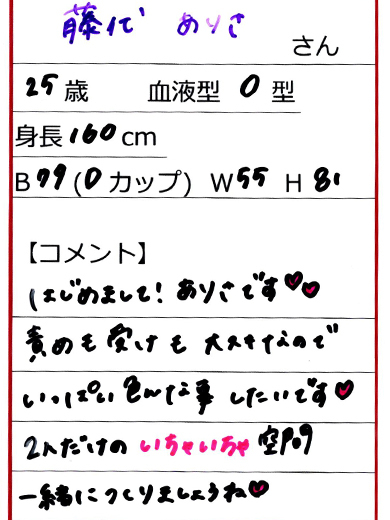 藤代 ありさ さん
25歳 血液型 O 型
身長160cm
B99(Dカップ) W55 H81
【コメント】
はじめまして!ありさです♥♥
責めも受けも大スキなので
いっぱい色んな事したいです♥
2人だけのいちゃいちゃ空間
一緒につくりましょうね♥